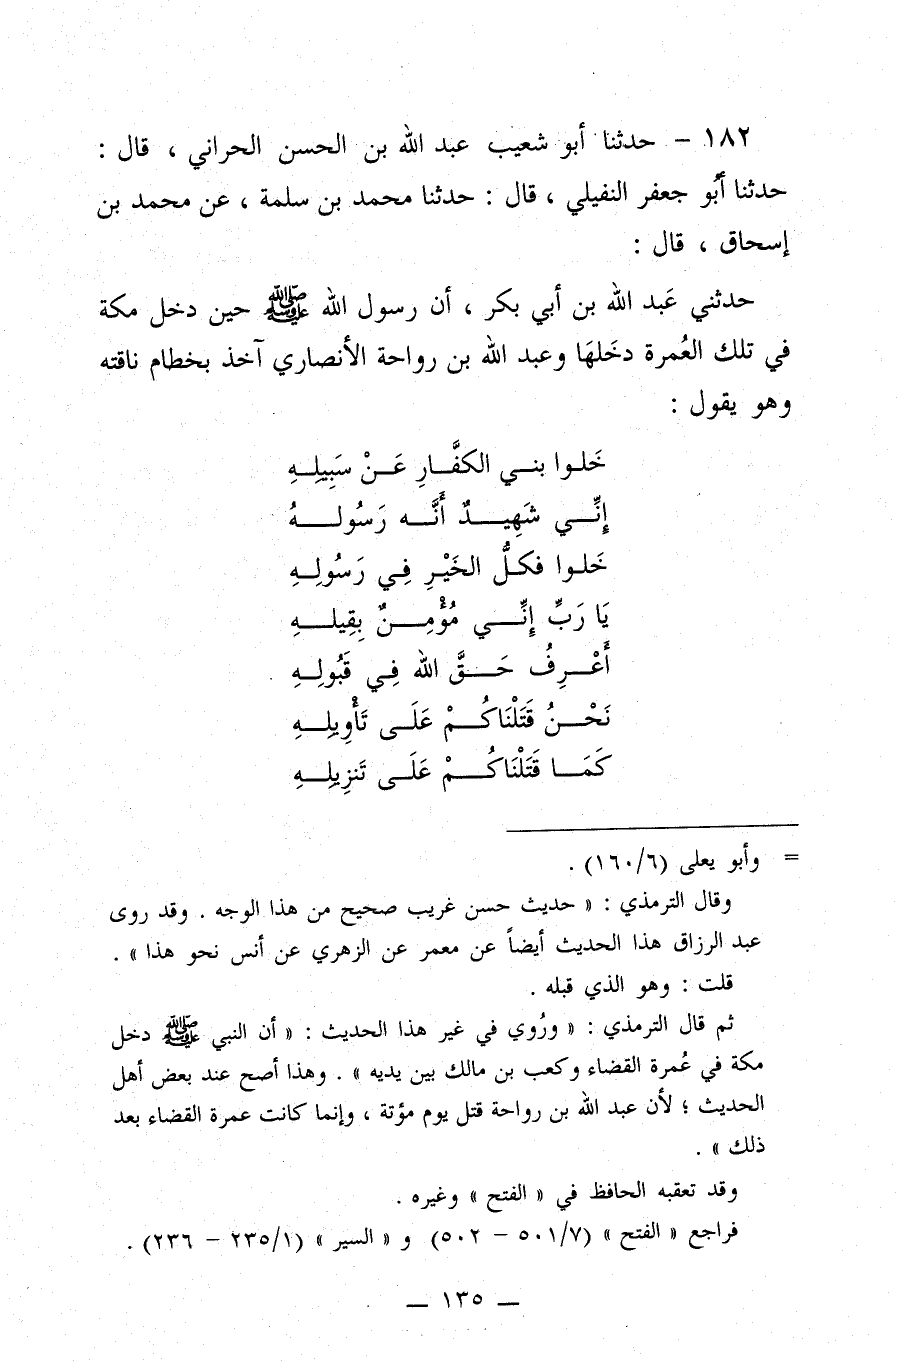 ١٨٢ – حدثنا أبو شعيب عبد الله بن الحسن الحراني ، قال :
حدثنا أبُو جعفر النفيلي ، قال : حدثنا محمد بن سلمة ، عن محمد بن
إسحاق ، قال :
حدثني عَبد الله بن أبي بكر ، أن رسول الله ﷺ حين دخل مكة
في تلك العُمرة دخَلهَا وعبد الله بن رواحة الأنصاري آخذ بخطام ناقته
وهو يقول :
خَلـوا بنـي الكفَّـارِ عَـنْ سَبِيلِـهِ
إنِّـي شَهِيـدٌ أنَّـه رَسُولـهُ
خَلـوا فكـلُّ الخَيْـرِ فِـي رَسُولِـهِ
يَا رَبِّ إنِّـي مُؤْمِـنٌ بِقِيلـهِ
أَعْـرِفُ حَـقَّ الله فِـي قَبُولِـهِ
نَحْـنُ قَتَلْنَاكُـمْ عَلَـى تَأْوِيلِـهِ
كَمَـا قَتَلْنَاكُـمْ عَلَـى تَنزِيلِـهِ
= وأبو يعلى (١٦٠/٦) .
وقال الترمذي : « حديث حسن غريب صحيح من هذا الوجه . وقد روى
عبد الرزاق هذا الحديث أيضاً عن معمر عن الزهري عن أنس نحو هذا » .
قلت : وهو الذي قبله .
ثم قال الترمذي : « ورُوي في غير هذا الحديث : « أن النبي ﷺ دخل
مكة في عُمرة القضاء وكعب بن مالك بين يديه » . وهذا أصح عند بعض أهل
الحديث ؛ لأن عبد الله بن رواحة قتل يوم مؤتة ، وإنما كانت عمرة القضاء بعد
ذلك » .
وقد تعقبه الحافظ في « الفتح » وغيره .
فراجع « الفتح » (٥٠١/٧ – ٥٠٢) و « السير » (٢٣٥/١ – ٢٣٦) .
— ١٣٥ —